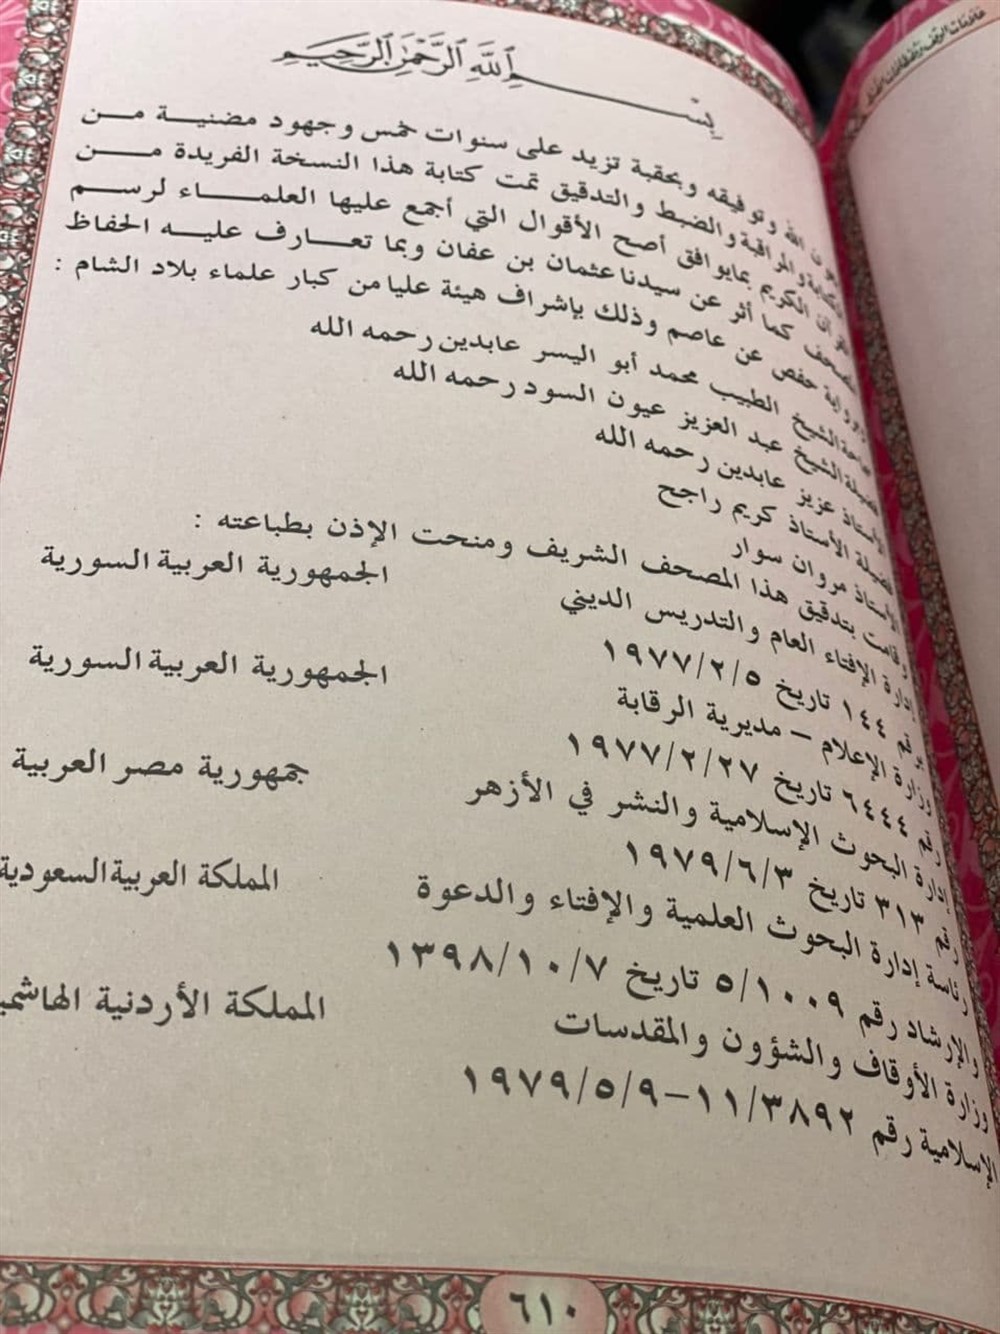 بسم الله الرحمن الرحيم
بعون الله وتوفيقه وبحقبة تزيد على سنوات خمس وجهود مضنية من
الكتابة والمراقبة والضبط والتدقيق تمت كتابة هذا النسخة الفريدة من
القرآن الكريم بما يوافق أصح الأقوال التي أجمع عليها العلماء لرسم
المصحف كما أثر عن سيدنا عثمان بن عفان وبما تعارف عليه الحفاظ
برواية حفص عن عاصم وذلك بإشراف هيئة عليا من كبار علماء بلاد الشام :
سماحة الشيخ الطبيب محمد أبو اليسر عابدين رحمه الله
فضيلة الشيخ عبد العزيز عيون السود رحمه الله
الأستاذ عزيز عابدين رحمه الله
فضيلة الأستاذ كريم راجح
الأستاذ مروان سوار
وقامت بتدقيق هذا المصحف الشريف ومنحت الإذن بطباعته :
إدارة الإفتاء العام والتدريس الديني الجمهورية العربية السورية
رقم ١٤٤ تاريخ ١٩٧٧/٢/٥
وزارة الإعلام – مديرية الرقابة الجمهورية العربية السورية
رقم ٦٤٤٤ تاريخ ١٩٧٧/٢/٢٧
إدارة البحوث الإسلامية والنشر في الأزهر جمهورية مصر العربية
رقم ٣١٣ تاريخ ١٩٧٩/٦/٣
رئاسة إدارة البحوث العلمية والإفتاء والدعوة المملكة العربية السعودية
والإرشاد رقم ٥/١٠٠٩ تاريخ ١٣٩٨/١٠/٧
وزارة الأوقاف والشؤون والمقدسات المملكة الأردنية الهاشمية
الإسلامية رقم ١١/٣٨٩٢–١٩٧٩/٥/٩
٦١٠